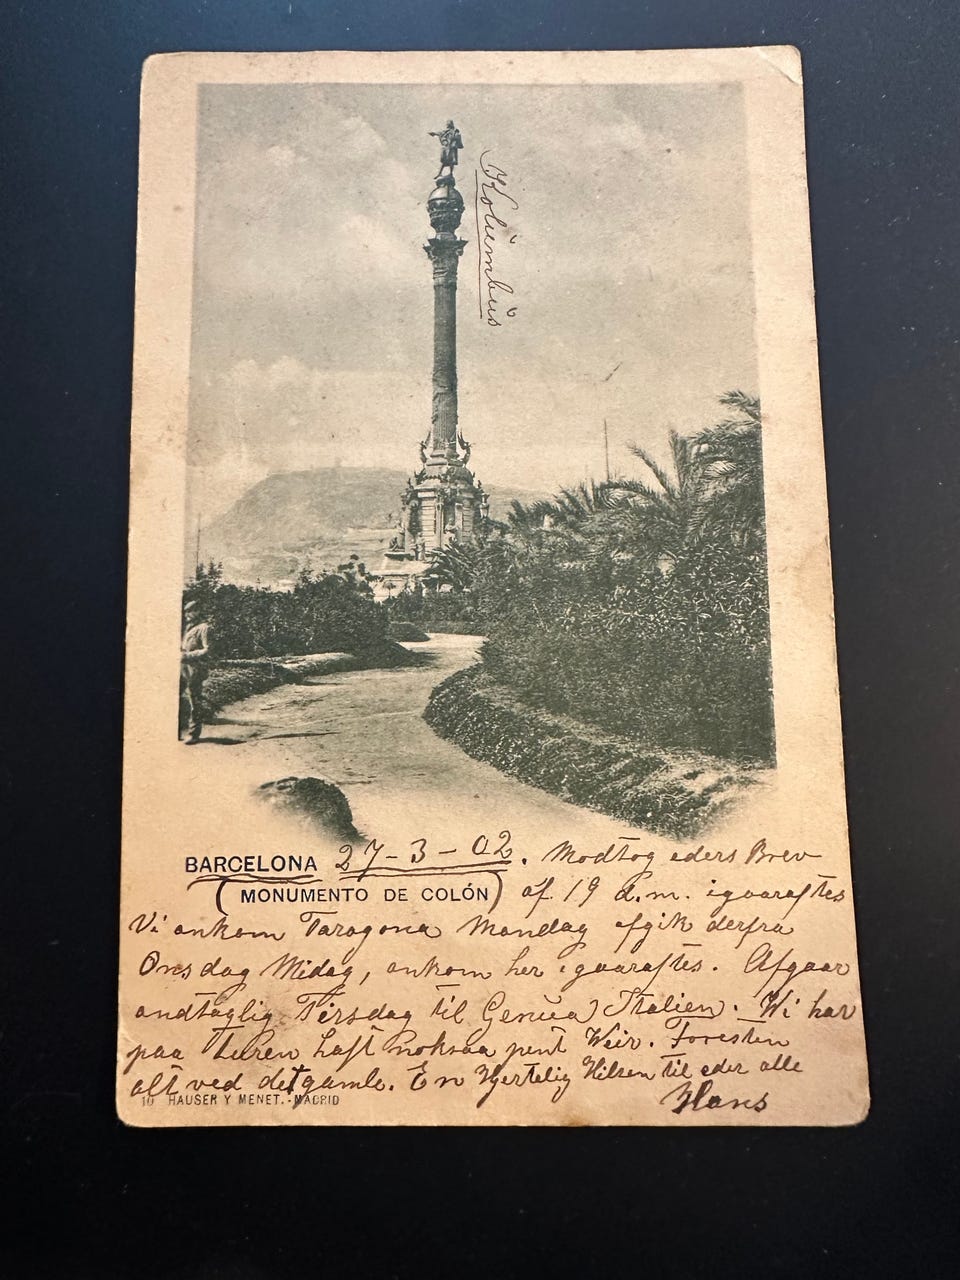 Kolumbus
BARCELONA 27-3-02. Modtog eders Brev
(MONUMENTO DE COLÓN) af 19 d.m. igaaraftes
Vi ankom Taragona Mandag afgik derfra
Onsdag Midag, ankom her igaaraftes. Afgaar
andtaglig Tirsdag til Genua) Italien. Wi har
paa Turen haft noksaa pent Weir. Foresten
alt ved det gamle. En Hjertelig Hilsen til eder alle
Hans
10 HAUSER Y MENET.-MADRID